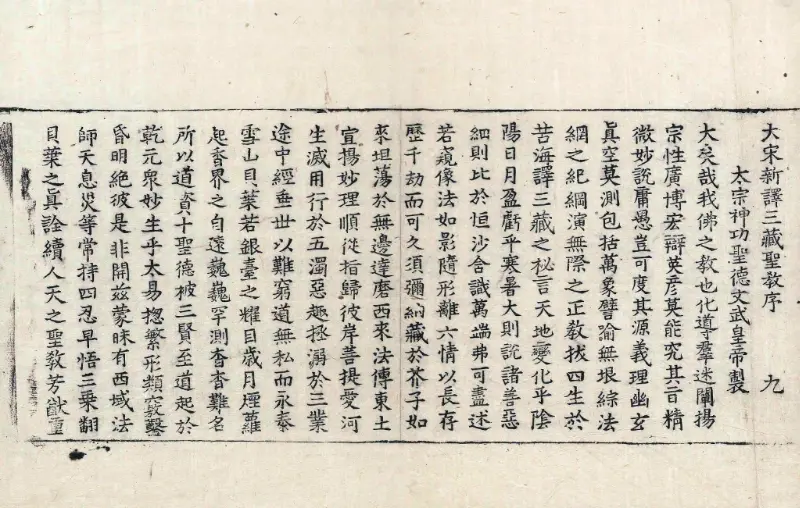 大宋新譯三藏聖教序　九
太宗神功聖德文武皇帝製
大矣哉我佛之教也化導羣迷闡揚
宗性廣博宏辯英彥莫能究其旨精
微妙說庸愚豈可度其源義理幽玄
真空莫測包括萬象譬喻無垠綜法
網之紀綱演無際之正教拔四生於
苦海譯三藏之秘言天地變化乎陰
陽日月盈虧乎寒暑大則說諸善惡
細則比於恒沙含識萬端弗可盡述
若窺像法如影隨形離六情以長存
歷千劫而可久須彌納藏於芥子如
來坦蕩於無邊達磨西來法傳東土
宣揚妙理順從指歸彼岸菩提愛河
生滅用行於五濁惡趣拯溺於三業
途中經垂世以難窮道無私而永泰
雪山貝葉若銀臺之耀目歲月煙蘿
起香界之自遠巍巍罕測杳杳難名
所以道資十聖德被三賢至道起於
乾元衆妙生乎太易揔繁形類竅鑿
昏明絕彼是非開茲蒙昧有西域法
師天息災等常持四忍早悟三乘翻
貝葉之真詮續人天之聖教芳猷重